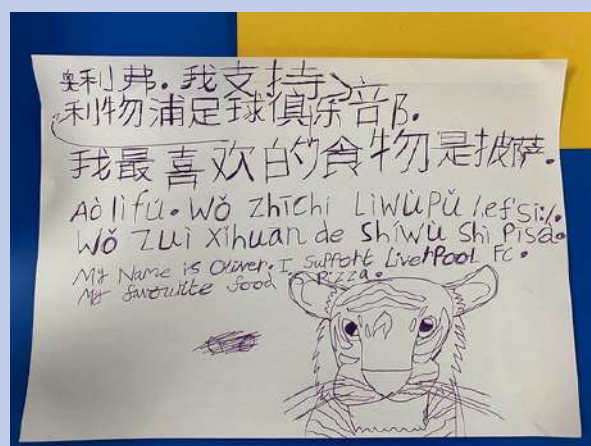 奥利弗。我支持
利物浦足球俱乐部。
我最喜欢的食物是披萨。
Aòlìfú. Wǒ Zhīchí LìWùPǔ /.ef'Si:/.
Wǒ Zuì Xǐhuan de Shíwù Shì Pīsà.
My Name is Oliver. I Support LiverPool FC.
My favourite food is Pizza.